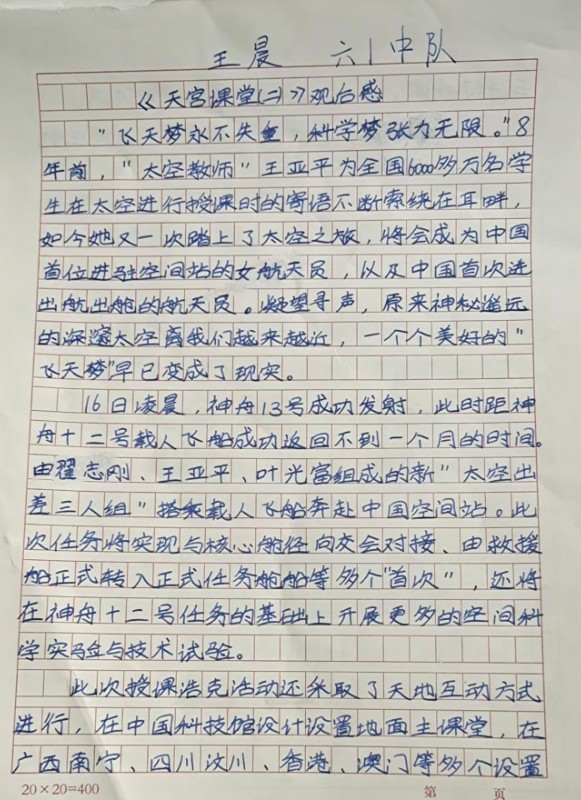 王晨 六1中队
《天宫课堂(二)》观后感
"飞天梦永不失重，科学梦张力无限。"8
年前，"太空教师"王亚平为全国6000多万名学
生在太空进行授课时的寄语不断萦绕在耳畔，
如今她又一次踏上了太空之旅，将会成为中国
首位进驻空间站的女航天员，以及中国首次进
出航出舱的航天员。凝望寻声，原来神秘遥远
的深邃太空离我们越来越近，一个个美好的"
飞天梦"早已变成了现实。
16日凌晨，神舟13号成功发射，此时距神
舟十二号载人飞船成功返回不到一个月的时间。
由翟志刚、王亚平、叶光富组成的新"太空出
差三人组"搭乘载人飞船奔赴中国空间站。此
次任务将实现与核心舱径向交会对接、由救援
船正式转入正式任务舱船等多个"首次"，还将
在神舟十二号任务的基础上开展更多的空间科
学实验与技术试验。
此次授课浩克活动还采取了天地互动方式
进行，在中国科技馆设计设置地面主课堂，在
广西南宁、四川汶川、香港、澳门等多个设置
20×20=400 第 页